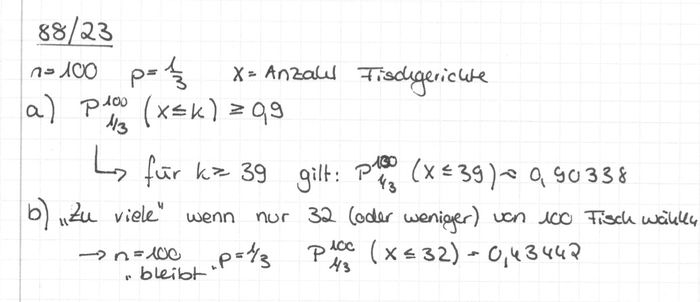 88/23
n=100 p=1/3 X= Anzahl Fischgerichte
a) P¹⁰⁰₁/₃ (X≤k) ≥ 0,9
↳ für k≥ 39 gilt: P¹⁰⁰₁/₃ (X≤39) ≈ 0,90338
b) „Zu viele" wenn nur 32 (oder weniger) von 100 Fisch wählen
→ n=100 p=1/3 P¹⁰⁰₁/₃ (X≤32) = 0,43442
"bleibt"